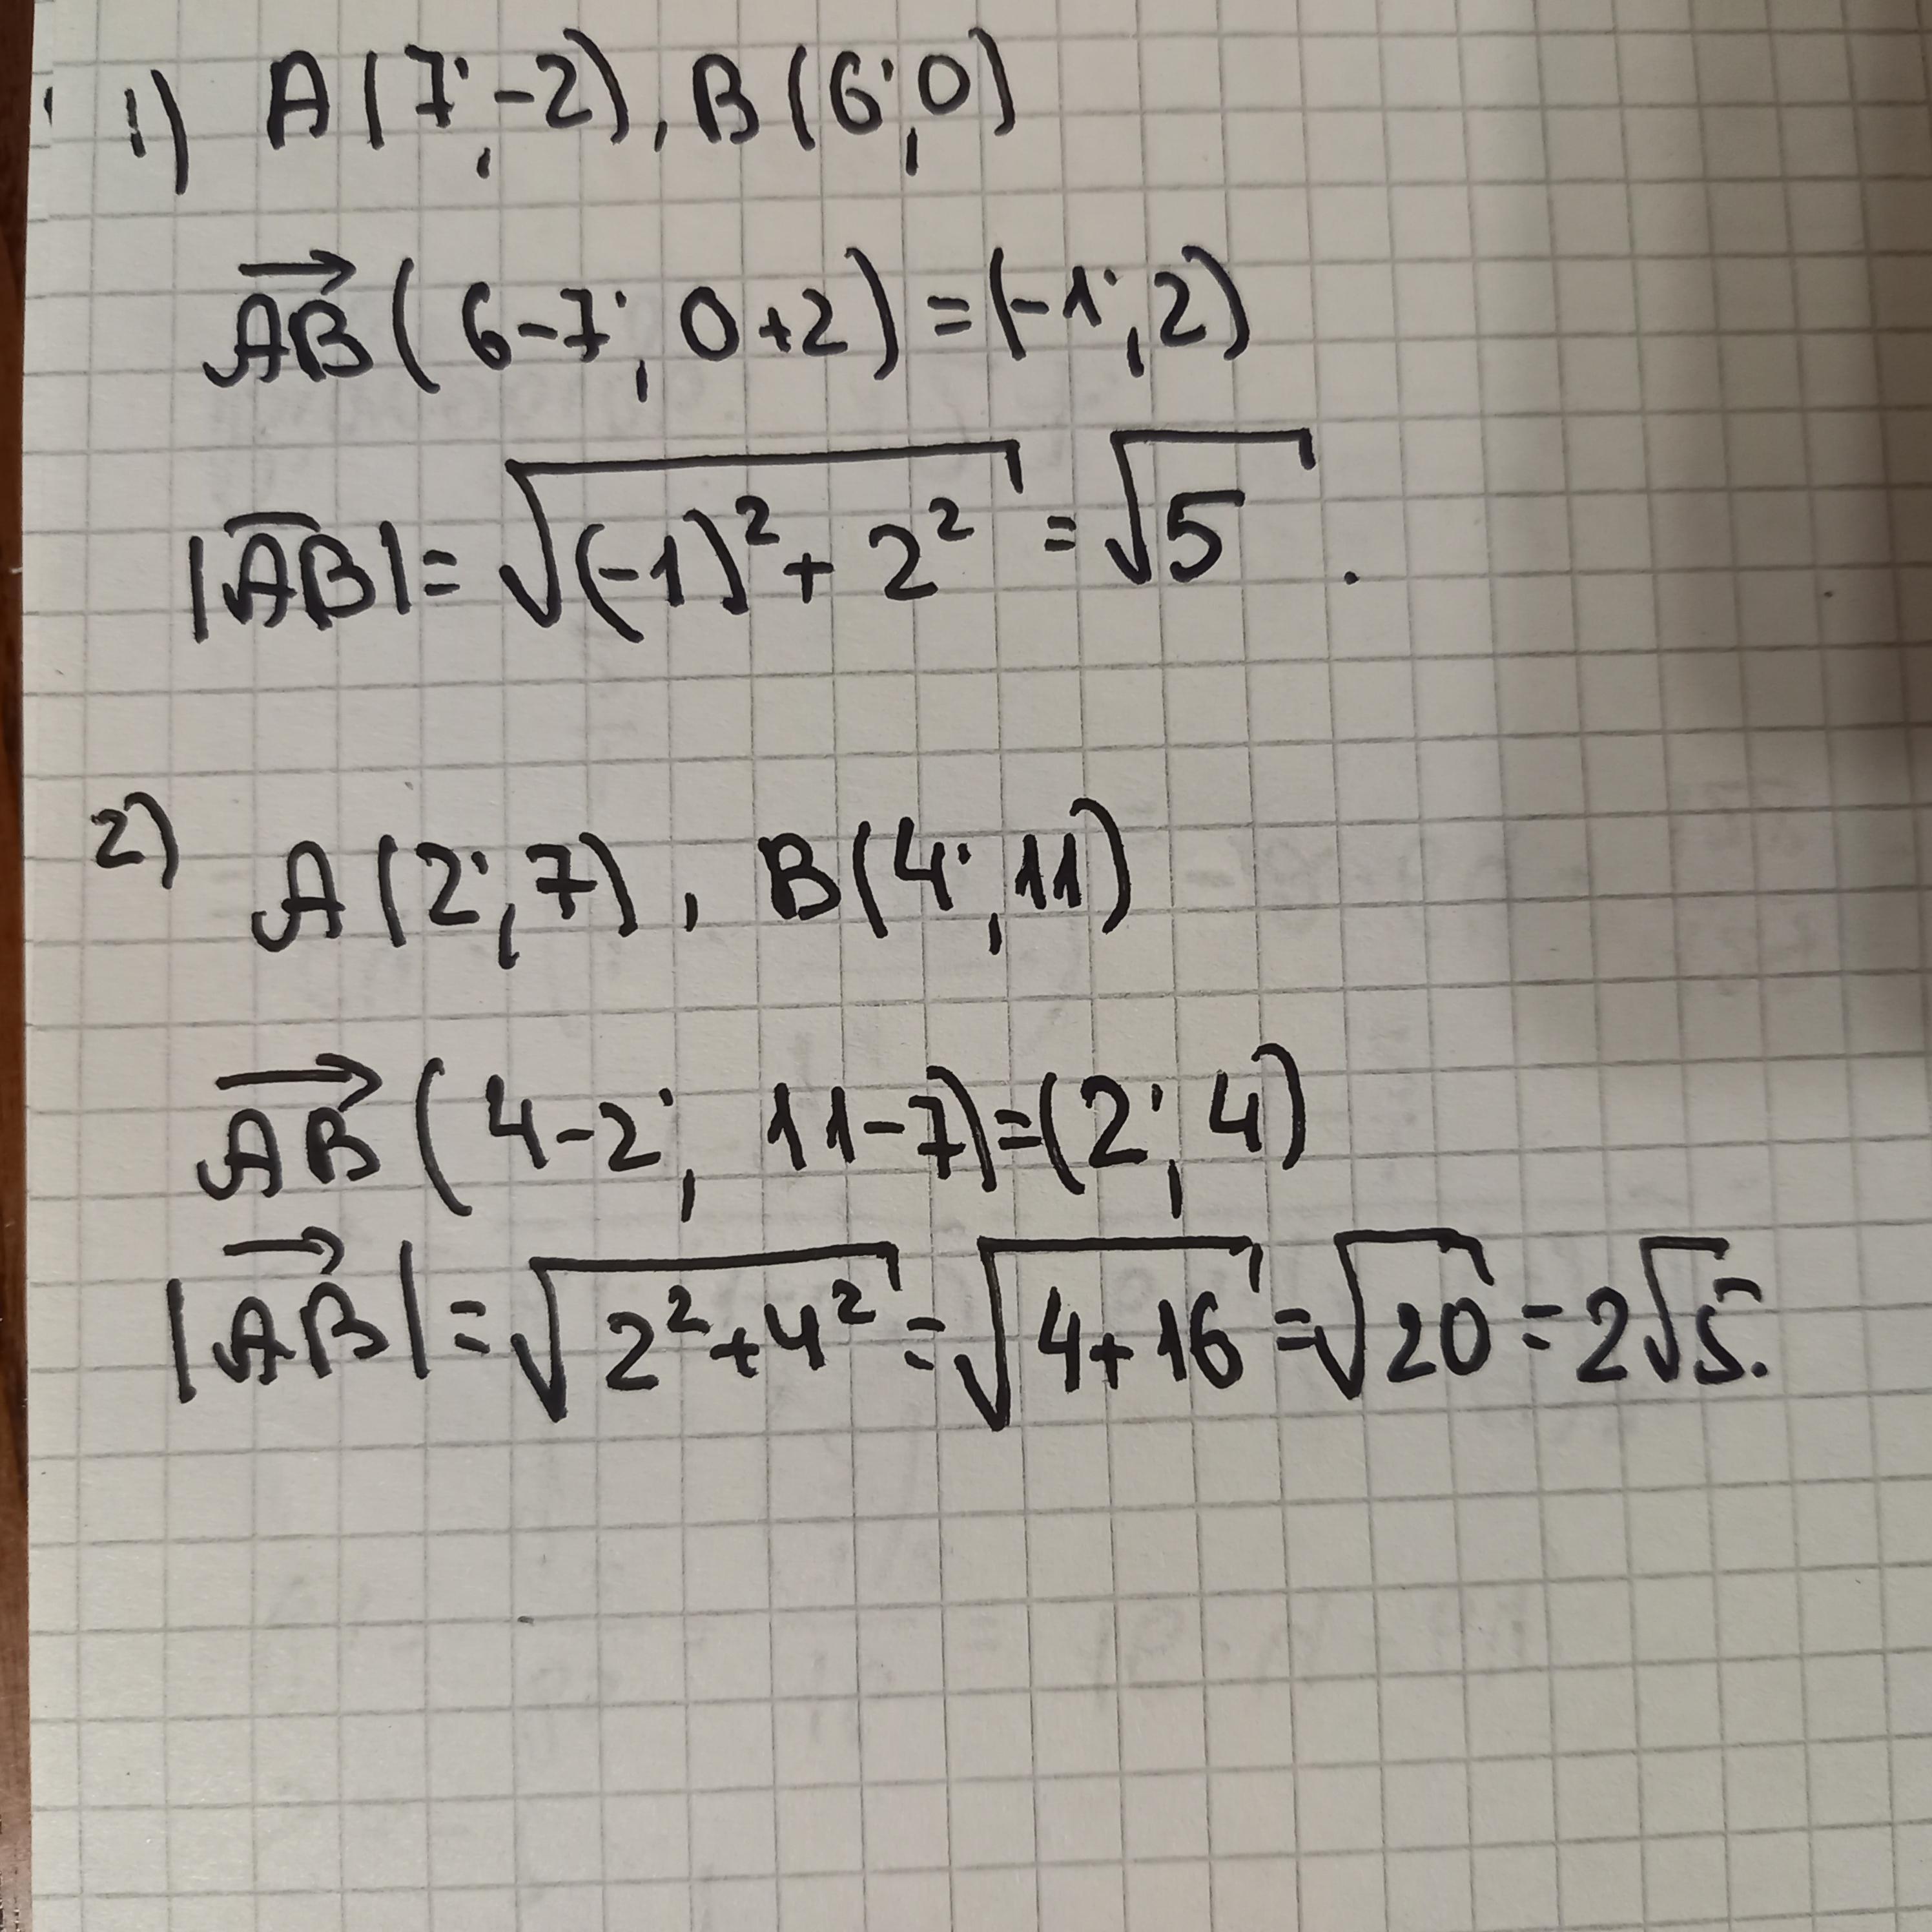 1) A(7; -2), B(6; 0)
$\overrightarrow{AB}$(6-7; 0+2) = (-1; 2)
|$\overline{AB}$| = $\sqrt{(-1)^2 + 2^2}$ = $\sqrt{5}$.
2) A(2; 7), B(4; 11)
$\overrightarrow{AB}$(4-2; 11-7) = (2; 4)
|$\overrightarrow{AB}$| = $\sqrt{2^2 + 4^2}$ = $\sqrt{4+16}$ = $\sqrt{20}$ = 2$\sqrt{5}$.